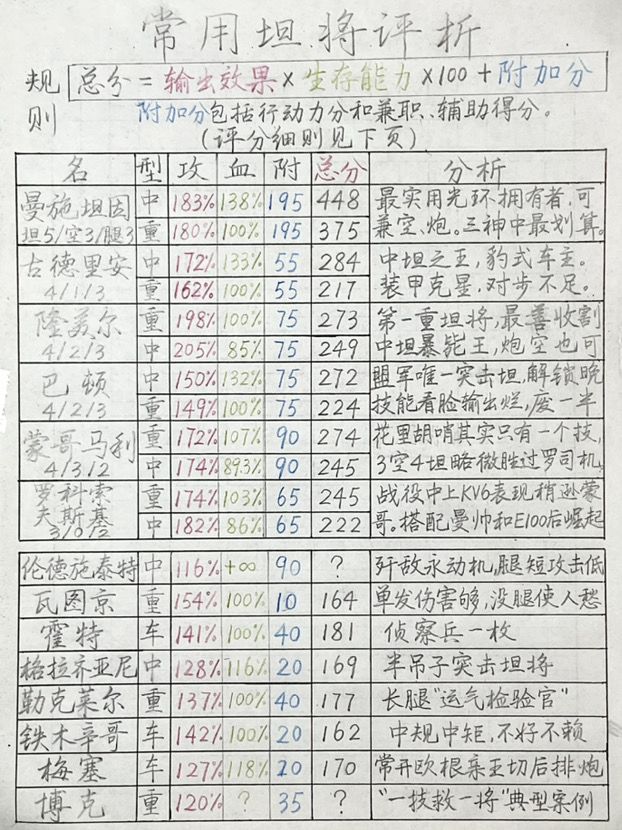 常用坦将评析
规则
总分=输出效果×生存能力×100+附加分
附加分包括行动力分和兼职、辅助得分。
(评分细则见下页)
名 型 攻 血 附 总分 分析
曼施坦因 中 183% 138% 195 448 最实用光环拥有者,可
坦5/空3/腿3 重 180% 100% 195 375 兼空、炮。三神中最划算。
古德里安 中 172% 133% 55 284 中坦之王,豹式车主。
4/1/3 重 162% 100% 55 217 装甲克星,对步不足。
隆美尔 重 198% 100% 75 273 第一重坦将,最善收割
4/2/3 中 205% 85% 75 249 中坦暴毙王,炮空也可
巴顿 中 150% 132% 75 272 盟军唯一突击坦,解锁晚
4/2/3 重 149% 100% 75 224 技能看脸输出烂,废一半
蒙哥马利 重 172% 107% 90 274 花里胡哨其实只有一个技,
4/3/2 中 174% 89.3% 90 245 3空4坦略微胜过罗司机。
罗科索 重 174% 103% 65 245 战役中上KV6表现稍逊蒙
夫斯基 3/0/2 中 182% 86% 65 222 哥。搭配曼帅和E100后崛起
伦德施泰特 中 116% +∞ 90 ? 歼敌永动机,腿短攻击低
瓦图京 重 154% 100% 10 164 单发伤害够,没腿使人愁
霍特 车 141% 100% 40 181 侦察兵一枚
格拉齐亚尼 中 128% 116% 20 169 半吊子突击坦将
勒克莱尔 重 137% 100% 40 177 长腿"运气检验官"
铁木辛哥 车 142% 100% 20 162 中规中矩,不好不赖
梅塞 车 127% 118% 20 170 常开欧根亲王切后排炮
博克 重 120% ? 35 ? "一技救一将"典型案例